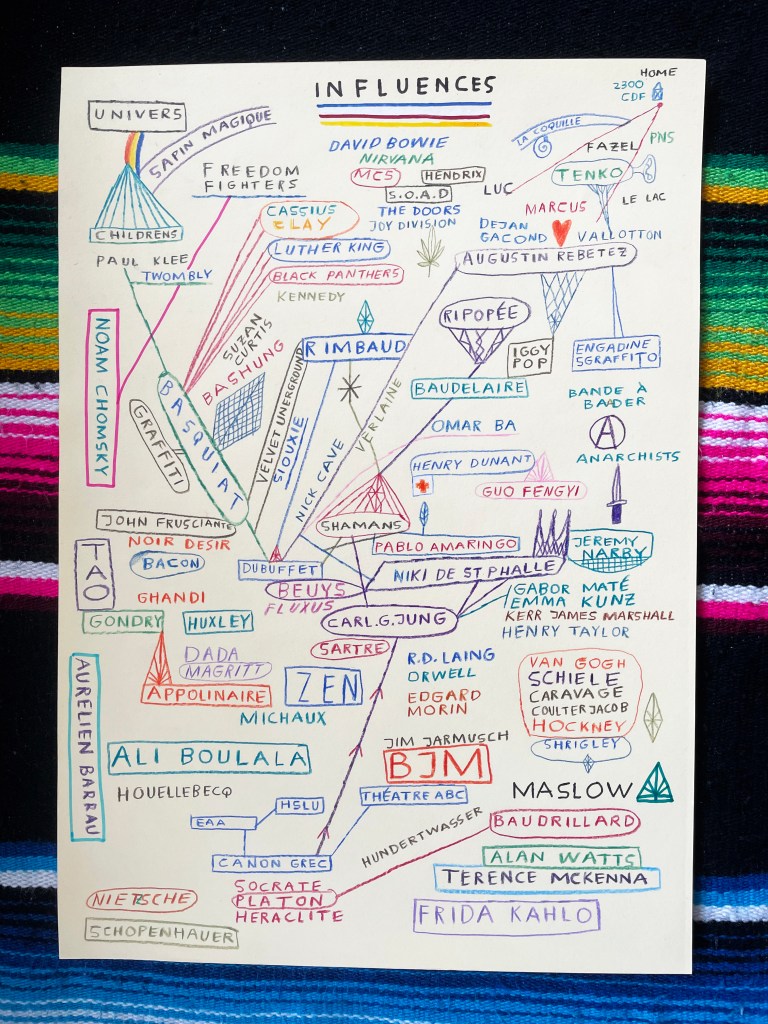 INFLUENCES
HOME
2300
CDF
UNIVERS
SAPIN MAGIQUE
LA COQUILLE
DAVID BOWIE
NIRVANA
MC5
HENDRIX
S.O.A.D
THE DOORS
JOY DIVISION
FAZEL
PNS
TENKO
LUC
LE LAC
MARCUS
DEJAN
GACOND
VALLOTTON
AUGUSTIN REBETEZ
FREEDOM
FIGHTERS
CASSIUS
CLAY
LUTHER KING
BLACK PANTHERS
KENNEDY
CHILDRENS
PAUL KLEE
TWOMBLY
RIPOPÉE
IGGY
POP
ENGADINE
SGRAFFITO
NOAM CHOMSKY
SUZAN
CURTIS
BASHUNG
RIMBAUD
BASQUIAT
GRAFFITI
VELVET UNERGROUND
SIOUXIE
NICK CAVE
VERLAINE
BAUDELAIRE
BANDE À
BADER
A
ANARCHISTS
OMAR BA
HENRY DUNANT
GUO FENGYI
JOHN FRUSCIANTE
NOIR DESIR
BACON
SHAMANS
PABLO AMARINGO
JEREMY
NARBY
TAO
DUBUFFET
NIKI DE ST PHALLE
GHANDI
BEUYS
FLUXUS
GABOR MATÉ
EMMA KUNZ
KERR JAMES MARSHALL
HENRY TAYLOR
GONDRY
HUXLEY
CARL.G.JUNG
SARTRE
DADA
MAGRITT
APPOLINAIRE
ZEN
MICHAUX
R.D. LAING
ORWELL
EDGARD
MORIN
VAN GOGH
SCHIELE
CARAVAGE
COULTER JACOB
HOCKNEY
SHRIGLEY
AURELIEN BARRAU
ALI BOULALA
JIM JARMUSCH
BJM
HOUELLEBECQ
THÉATRE ABC
MASLOW
HSLU
EAA
HUNDERTWASSER
BAUDRILLARD
CANON GREC
ALAN WATTS
TERENCE MCKENNA
SOCRATE
PLATON
HERACLITE
NIETSCHE
SCHOPENHAUER
FRIDA KAHLO